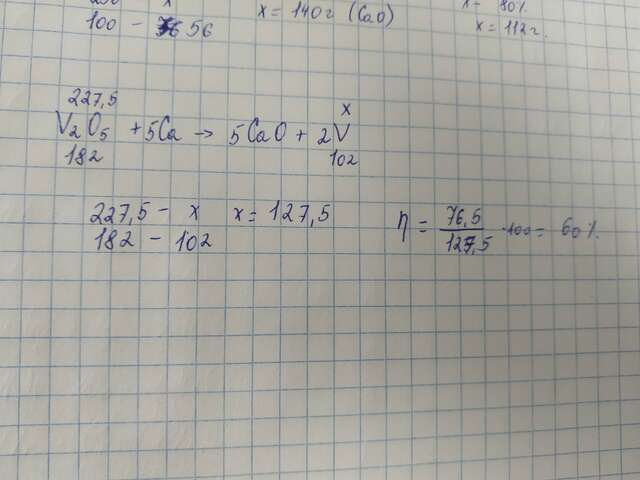 100 - 56
x = 140 г (CaO)
80%
x = 112 г.
227,5
x
V₂O₅ + 5Ca → 5CaO + 2V
182
102
227,5 - x x = 127,5
182 - 102
η = 76,5 / 127,5 · 100 = 60%.